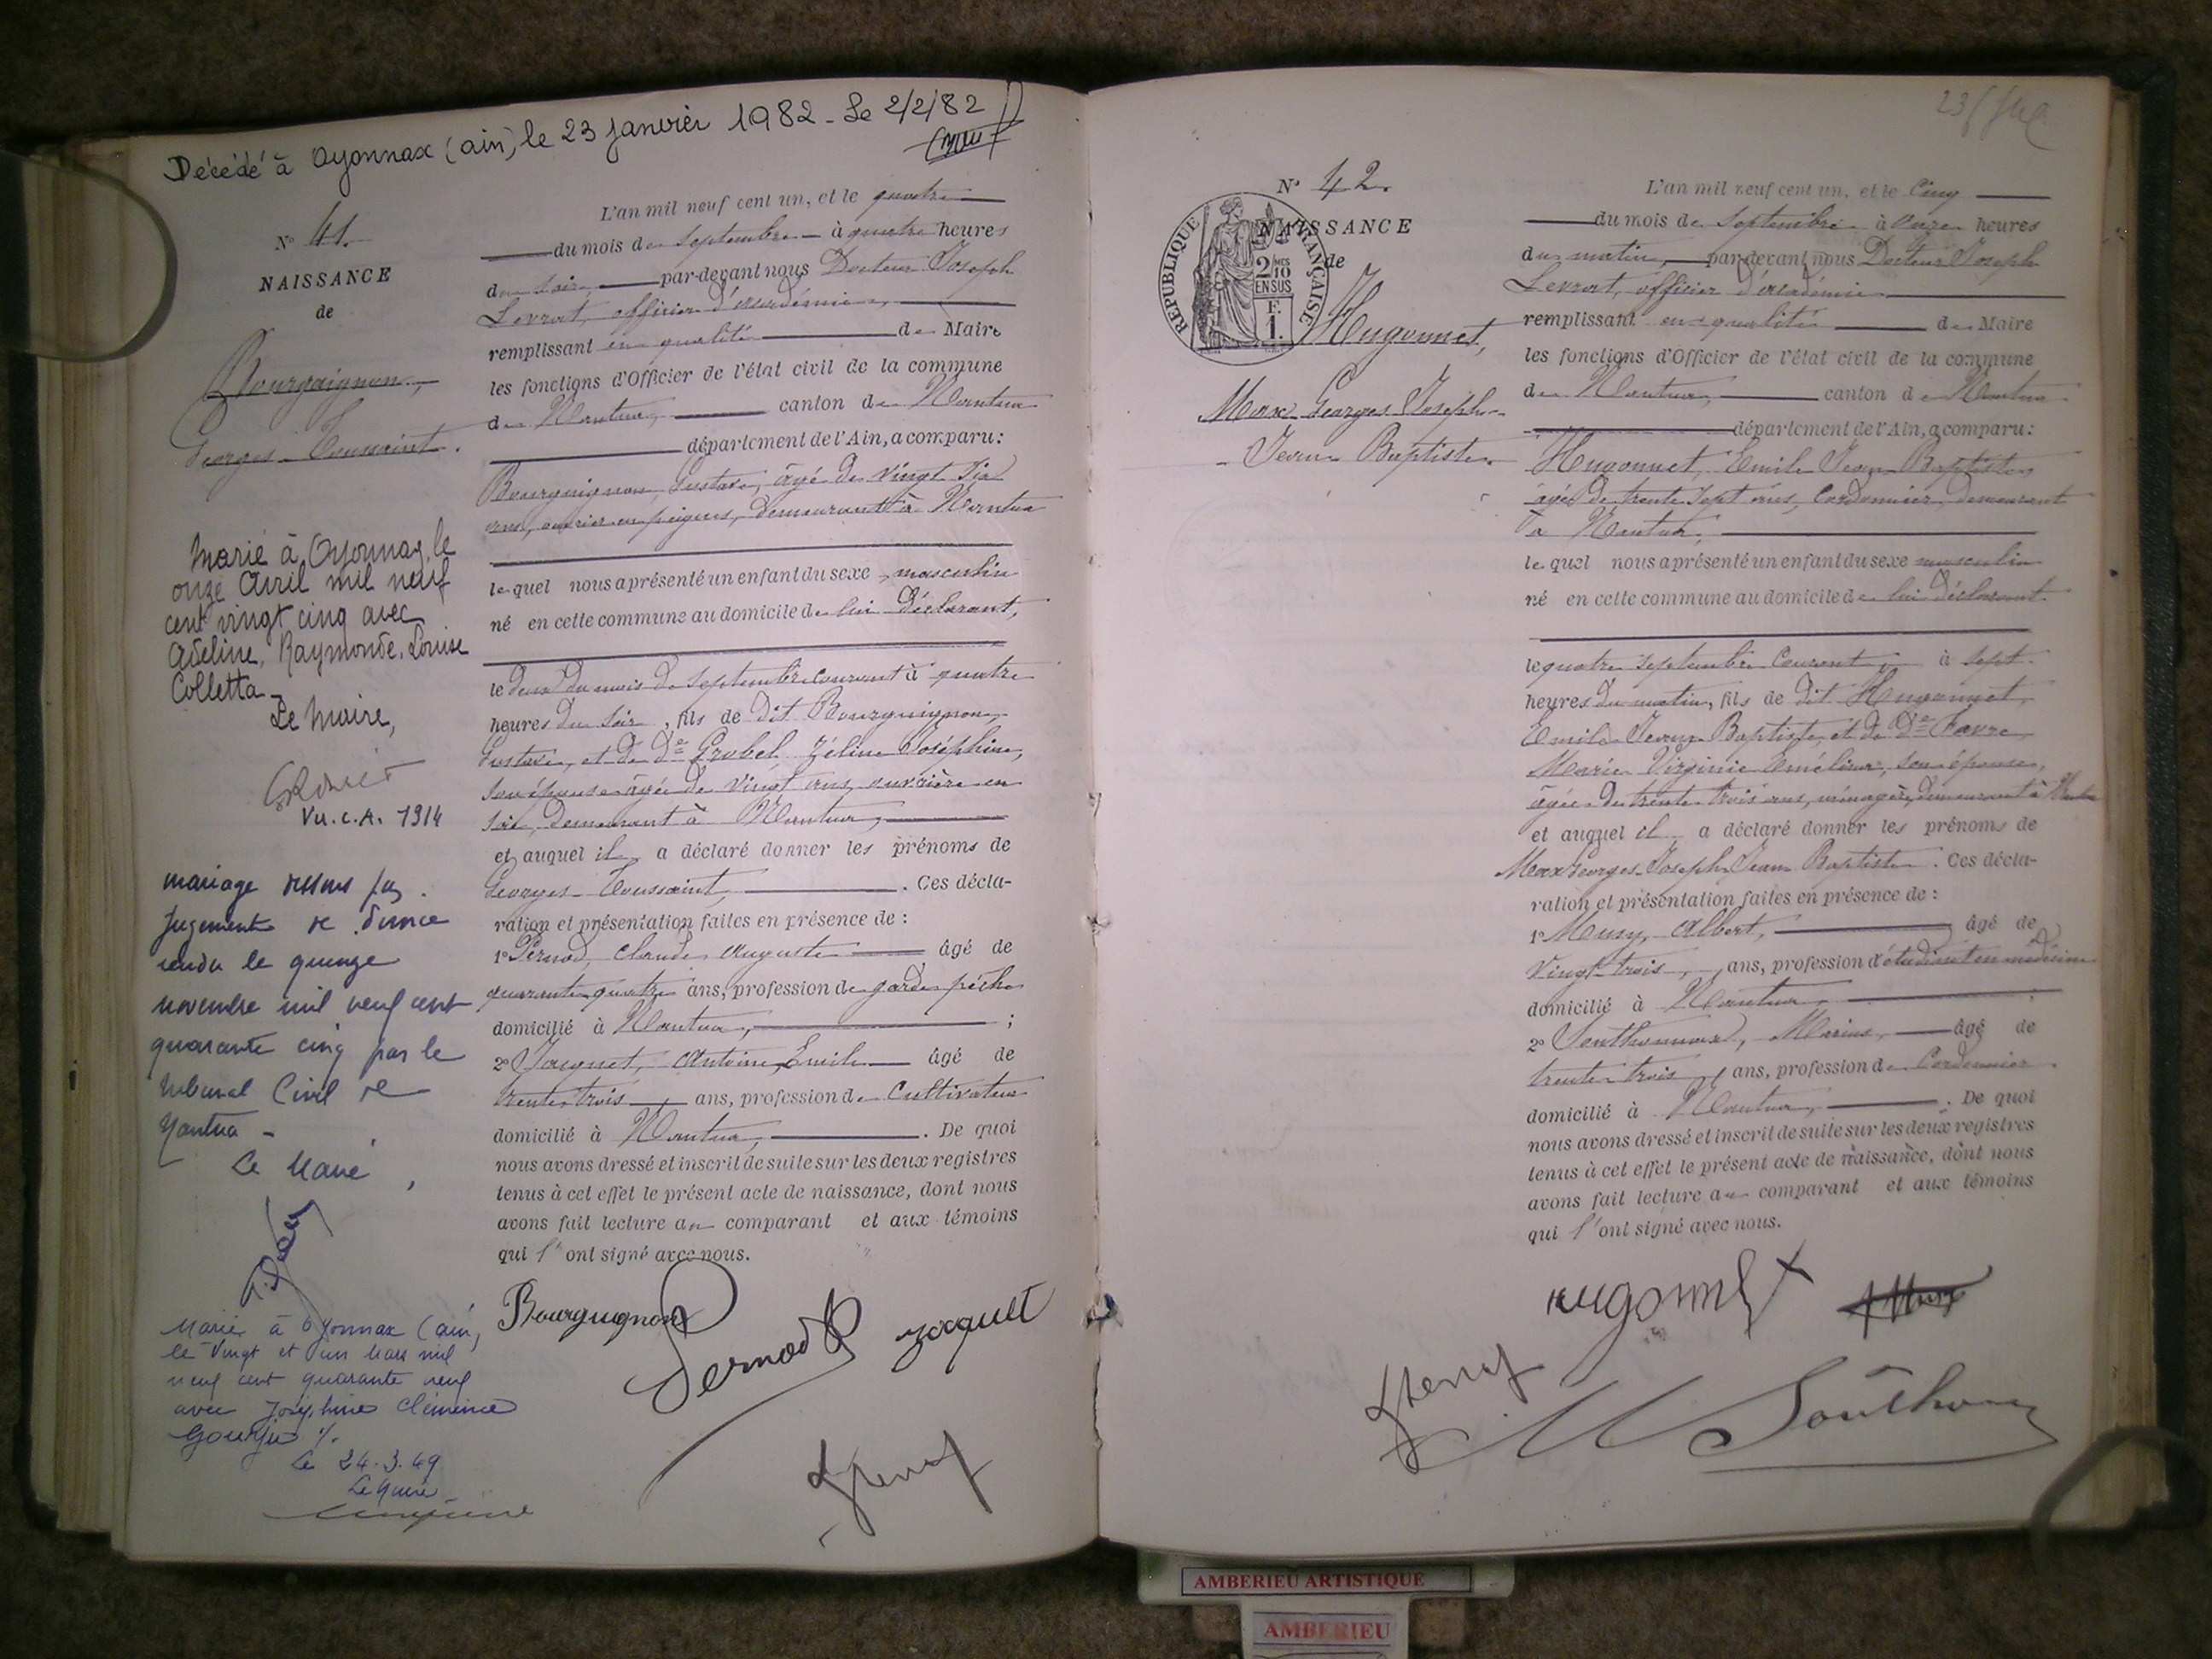 Décédé à Oyonnax (ain) le 23 janvier 1982 - Le 2/2/82
N° 41.
NAISSANCE
de
Bourguignon,
Georges Toussaint.
Marié à Oyonnax, le
onze Avril mil neuf
cent vingt cinq avec
Adeline, Raymonde, Louise
Colletta -
Le Maire,
Vu. C.A. 1914
mariage dissous par
Jugement de divorce
rendu le quinze
novembre mil neuf cent
quarante cinq par le
Tribunal Civil de
Nantua -
Le Maire,
Marié à Oyonnax (ain)
le vingt et un Mars mil
neuf cent quarante neuf
avec Joséphine Clémence
Le 24.3.49
Le Maire
L'an mil neuf cent un, et le quatre
du mois de Septembre à quatre heures
du soir, par-devant nous Docteur Joseph
Levrat, officier d'académie,
remplissant en qualité de Maire
les fonctions d'Officier de l'état civil de la commune
de Nantua, canton de Nantua
département de l'Ain, a comparu:
Bourguignon, Gustave, âgé de vingt six
ans, ouvrier en peignes, demeurant à Nantua
lequel nous a présenté un enfant du sexe masculin
né en cette commune au domicile de lui déclarant,
le deux du mois de Septembre courant à quatre
heures du soir, fils de dit Bourguignon,
Gustave, et de De Grobel Zéline Joséphine,
son épouse âgée de vingt ans, ouvrière en
soie, demeurant à Nantua,
et auquel il a déclaré donner les prénoms de
Georges Toussaint, . Ces décla-
ration et présentation faites en présence de :
1° Pernod, Claude Auguste âgé de
quarante quatre ans, profession de garde pêche
domicilié à Nantua, ;
2° Jacquet, Antoine Emile âgé de
trente trois ans, profession de Cultivateur
domicilié à Nantua, . De quoi
nous avons dressé et inscrit de suite sur les deux registres
tenus à cet effet le présent acte de naissance, dont nous
avons fait lecture au comparant et aux témoins
qui l'ont signé avec nous.
Bourguignon
Pernod
Jacquet
N° 42.
NAISSANCE
de
RÉPUBLIQUE FRANÇAISE
2/10 EN SUS
F. 1.
Hugonnet,
Max Georges Joseph
Jean Baptiste
L'an mil neuf cent un, et le Cinq
du mois de Septembre à onze heures
du matin, par-devant nous Docteur Joseph
Levrat, officier d'académie
remplissant en qualité de Maire
les fonctions d'Officier de l'état civil de la commune
de Nantua, canton de Nantua
département de l'Ain, a comparu:
Hugonnet, Emile Jean Baptiste,
âgé de trente sept ans, Cordonnier, demeurant
à Nantua,
lequel nous a présenté un enfant du sexe masculin
né en cette commune au domicile de lui déclarant
le quatre septembre courant à sept
heures du matin, fils de dit Hugonnet,
Emile Jean Baptiste, et de De Favre
Marie Virginie Eméline, son épouse,
âgée de trente trois ans, ménagère, demeurant à Nantua
et auquel il a déclaré donner les prénoms de
Max Georges Joseph Jean Baptiste. Ces décla-
ration et présentation faites en présence de :
1° Musy, Albert, âgé de
vingt trois, ans, profession d'étudiant en médecine
domicilié à Nantua, ;
2° Sonthonnax, Marius, âgé de
trente trois, ans, profession de Cordonnier
domicilié à Nantua, . De quoi
nous avons dressé et inscrit de suite sur les deux registres
tenus à cet effet le présent acte de naissance, dont nous
avons fait lecture au comparant et aux témoins
qui l'ont signé avec nous.
Hugonnet
AMBERIEU ARTISTIQUE
AMBERIEU